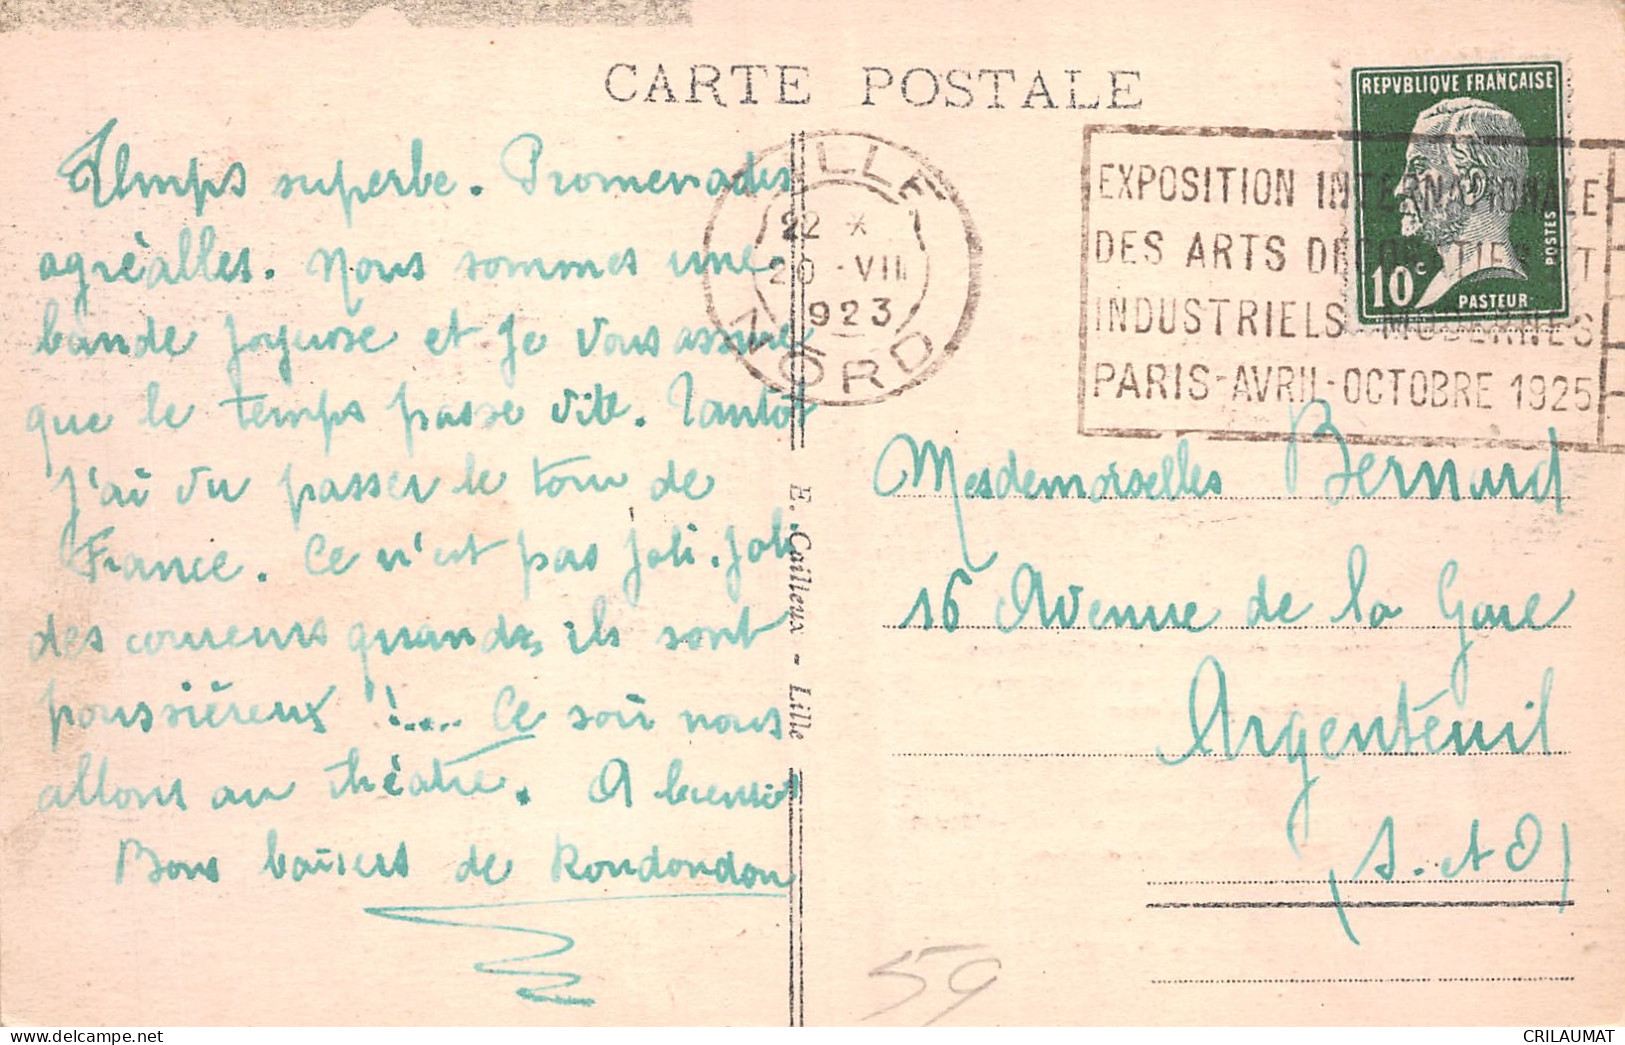 CARTE POSTALE
Temps superbe. Promenades
agréables. Nous sommes une
bande joyeuse et je vous assure
que le temps passe vite. Tantôt
j'ai vu passer le tour de
France. Ce n'est pas joli-joli
des coureurs quand ils sont
poussiéreux !.... Ce soir nous
allons au théâtre. A bientôt
Bons baisers de Rondondon
LILLE
22 * 
20 - VII
923
NORD
EXPOSITION INTERNATIONALE
DES ARTS DECORATIFS ET
INDUSTRIELS MODERNES
PARIS-AVRIL-OCTOBRE 1925
REPVBLIQVE FRANÇAISE
POSTES
10c
PASTEUR
E. Cailleux - Lille
Mesdemoiselles Bernard
16 Avenue de la Gare
Argenteuil
(S. et O)
59
CRILAUMAT